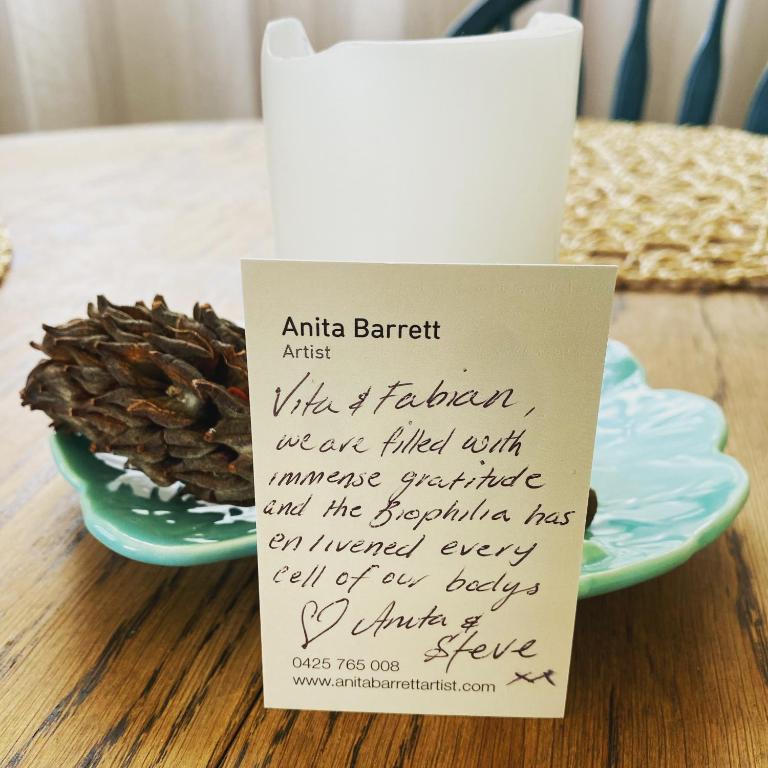 Anita Barrett
Artist
Vita & Fabian,
we are filled with
immense gratitude
and the Biophilia has
enlivened every
cell of our bodys
♡ Anita &
Steve
0425 765 008
www.anitabarrettartist.com xx